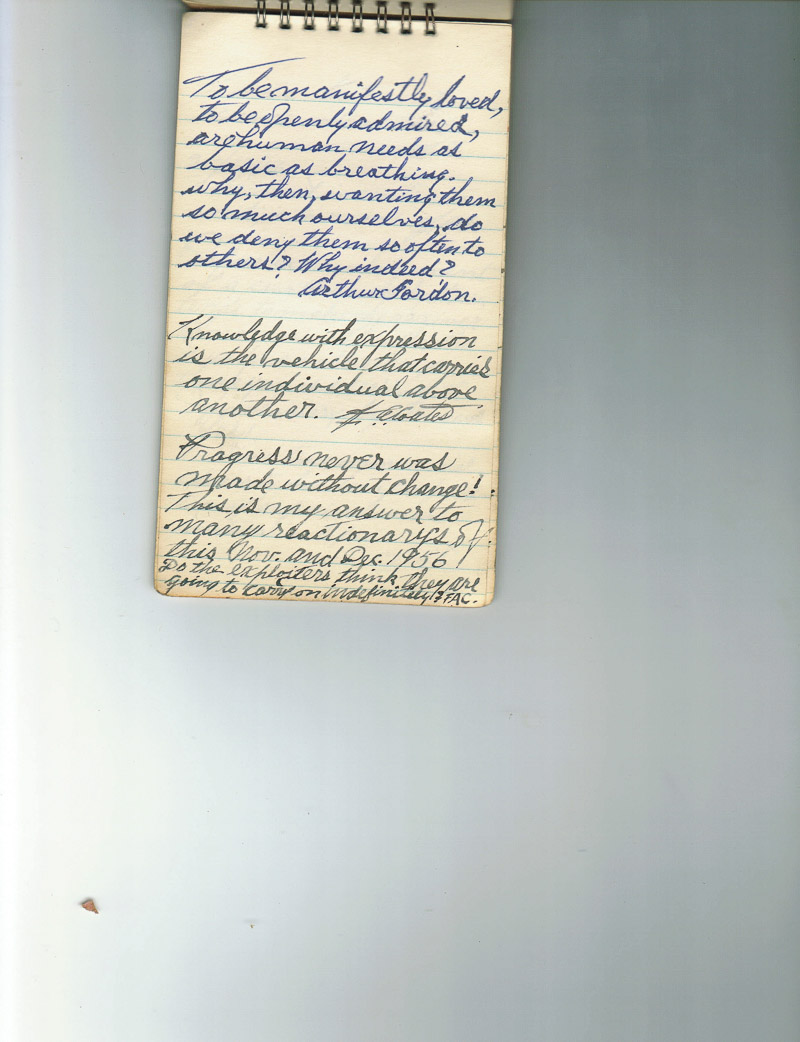 To be manifestly loved,
to be openly admired,
are human needs as
basic as breathing.
why, then, wanting them
so much ourselves, do
we deny them so often to
others? Why indeed?
Arthur Gordon.
Knowledge with expression
is the vehicle that carries
one individual above
another. Coates
Progress never was
made without change!
This is my answer to
many reactionarys of
this Nov. and Dec. 1956
Do the exploiters think they are
going to carry on indefinitely? FAC.